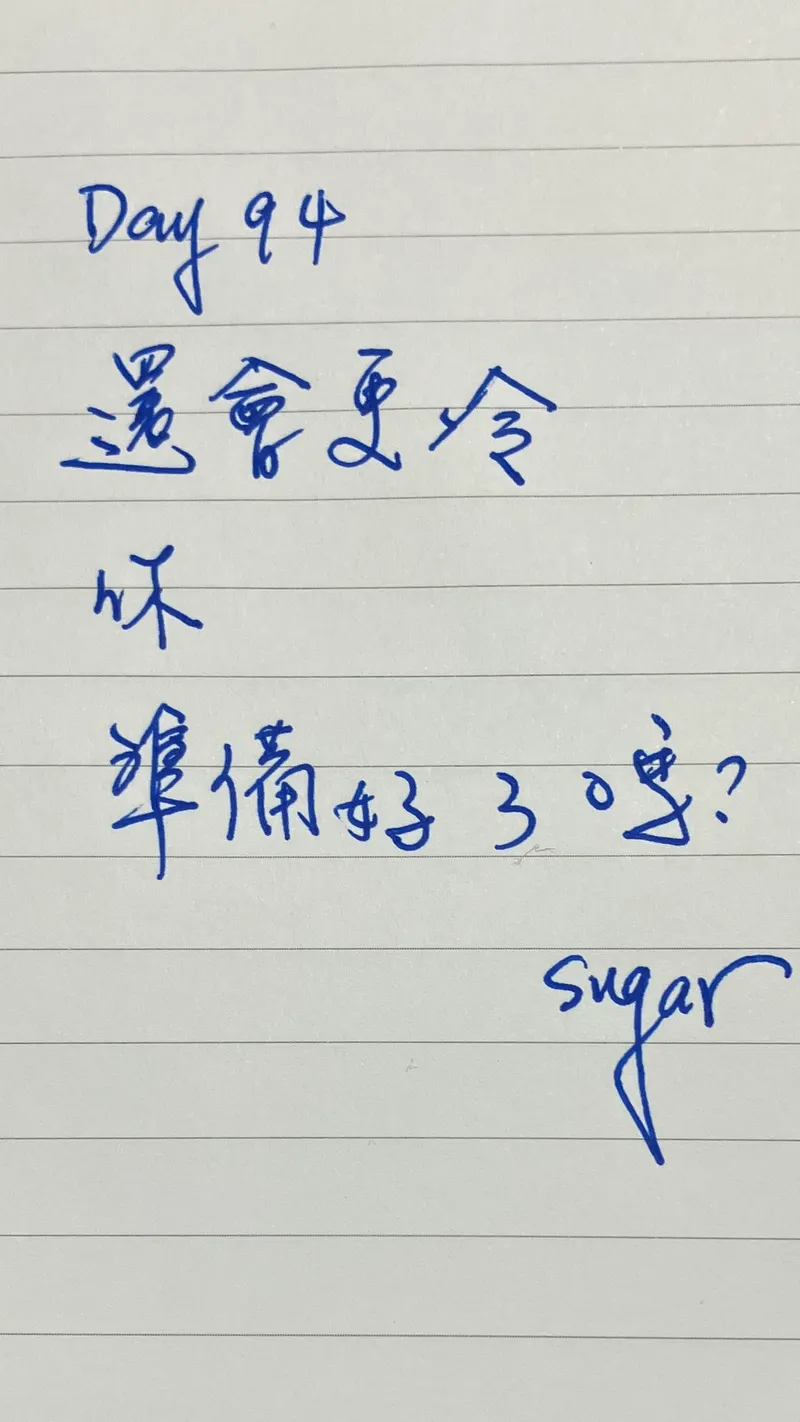 Day 94
還會更冷
你
準備好了嗎?
sugar